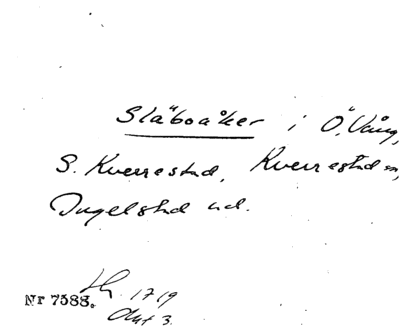 Släboåker i Ö. Vång,
S. Kverrestad, Kverrestad sn,
Ingelstad hd.
Nr 7588. 1719
Akt 3.